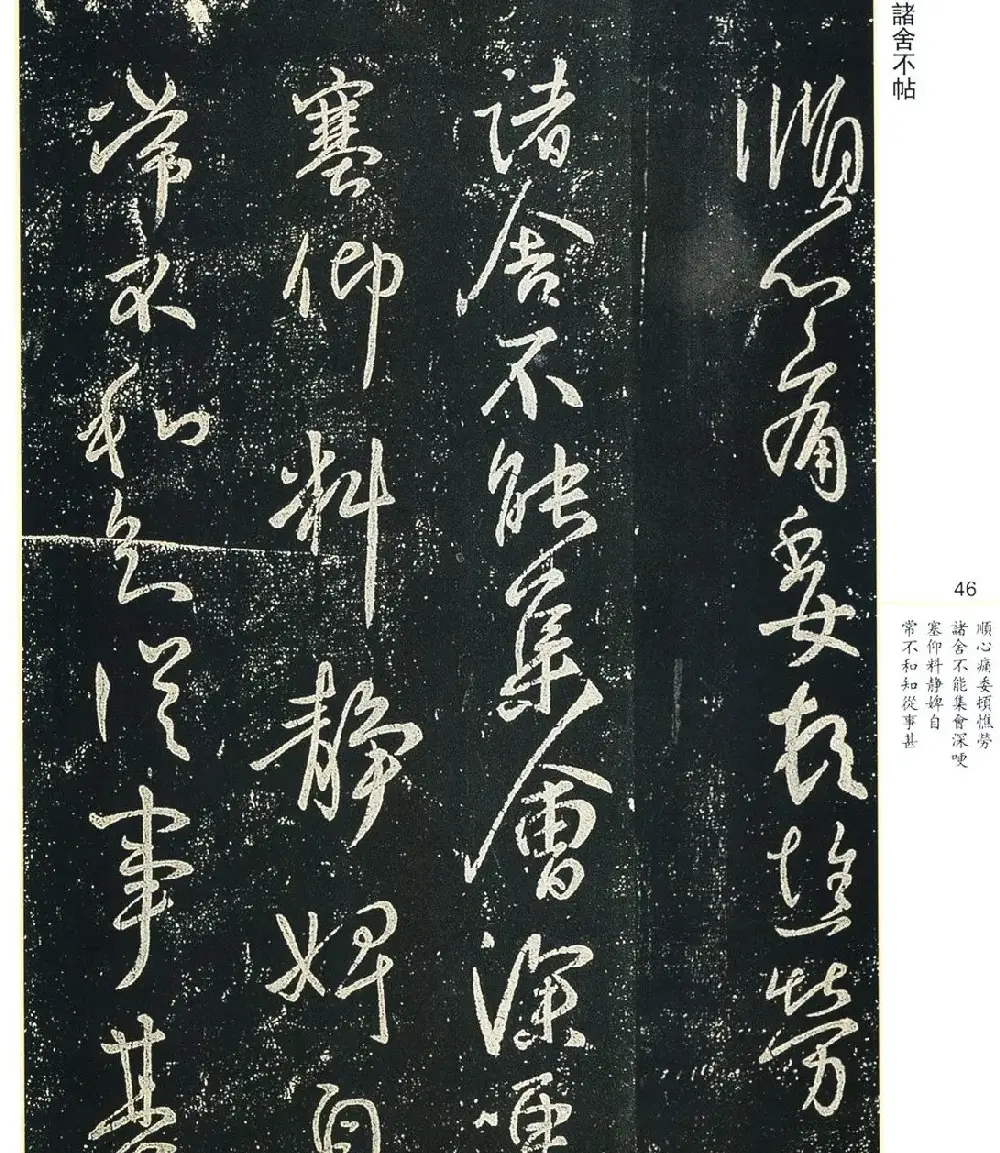 諸舍不帖
順心痛委頓憔勞
諸舍不能集會深哽
塞仰料靜婢自
常不和知從事甚
46
順心痛委頓憔勞
諸舍不能集會深哽
塞仰料靜婢自
常不和知從事甚